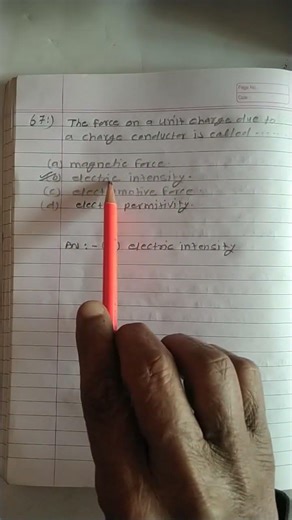 Page No.
Date
67:) The force on a unit charge due to
a charge conductor is called .....
(a) magnetic force.
(b) electric intensity.
(c) force.
(d) permitivity.
Ans :- electric intensity